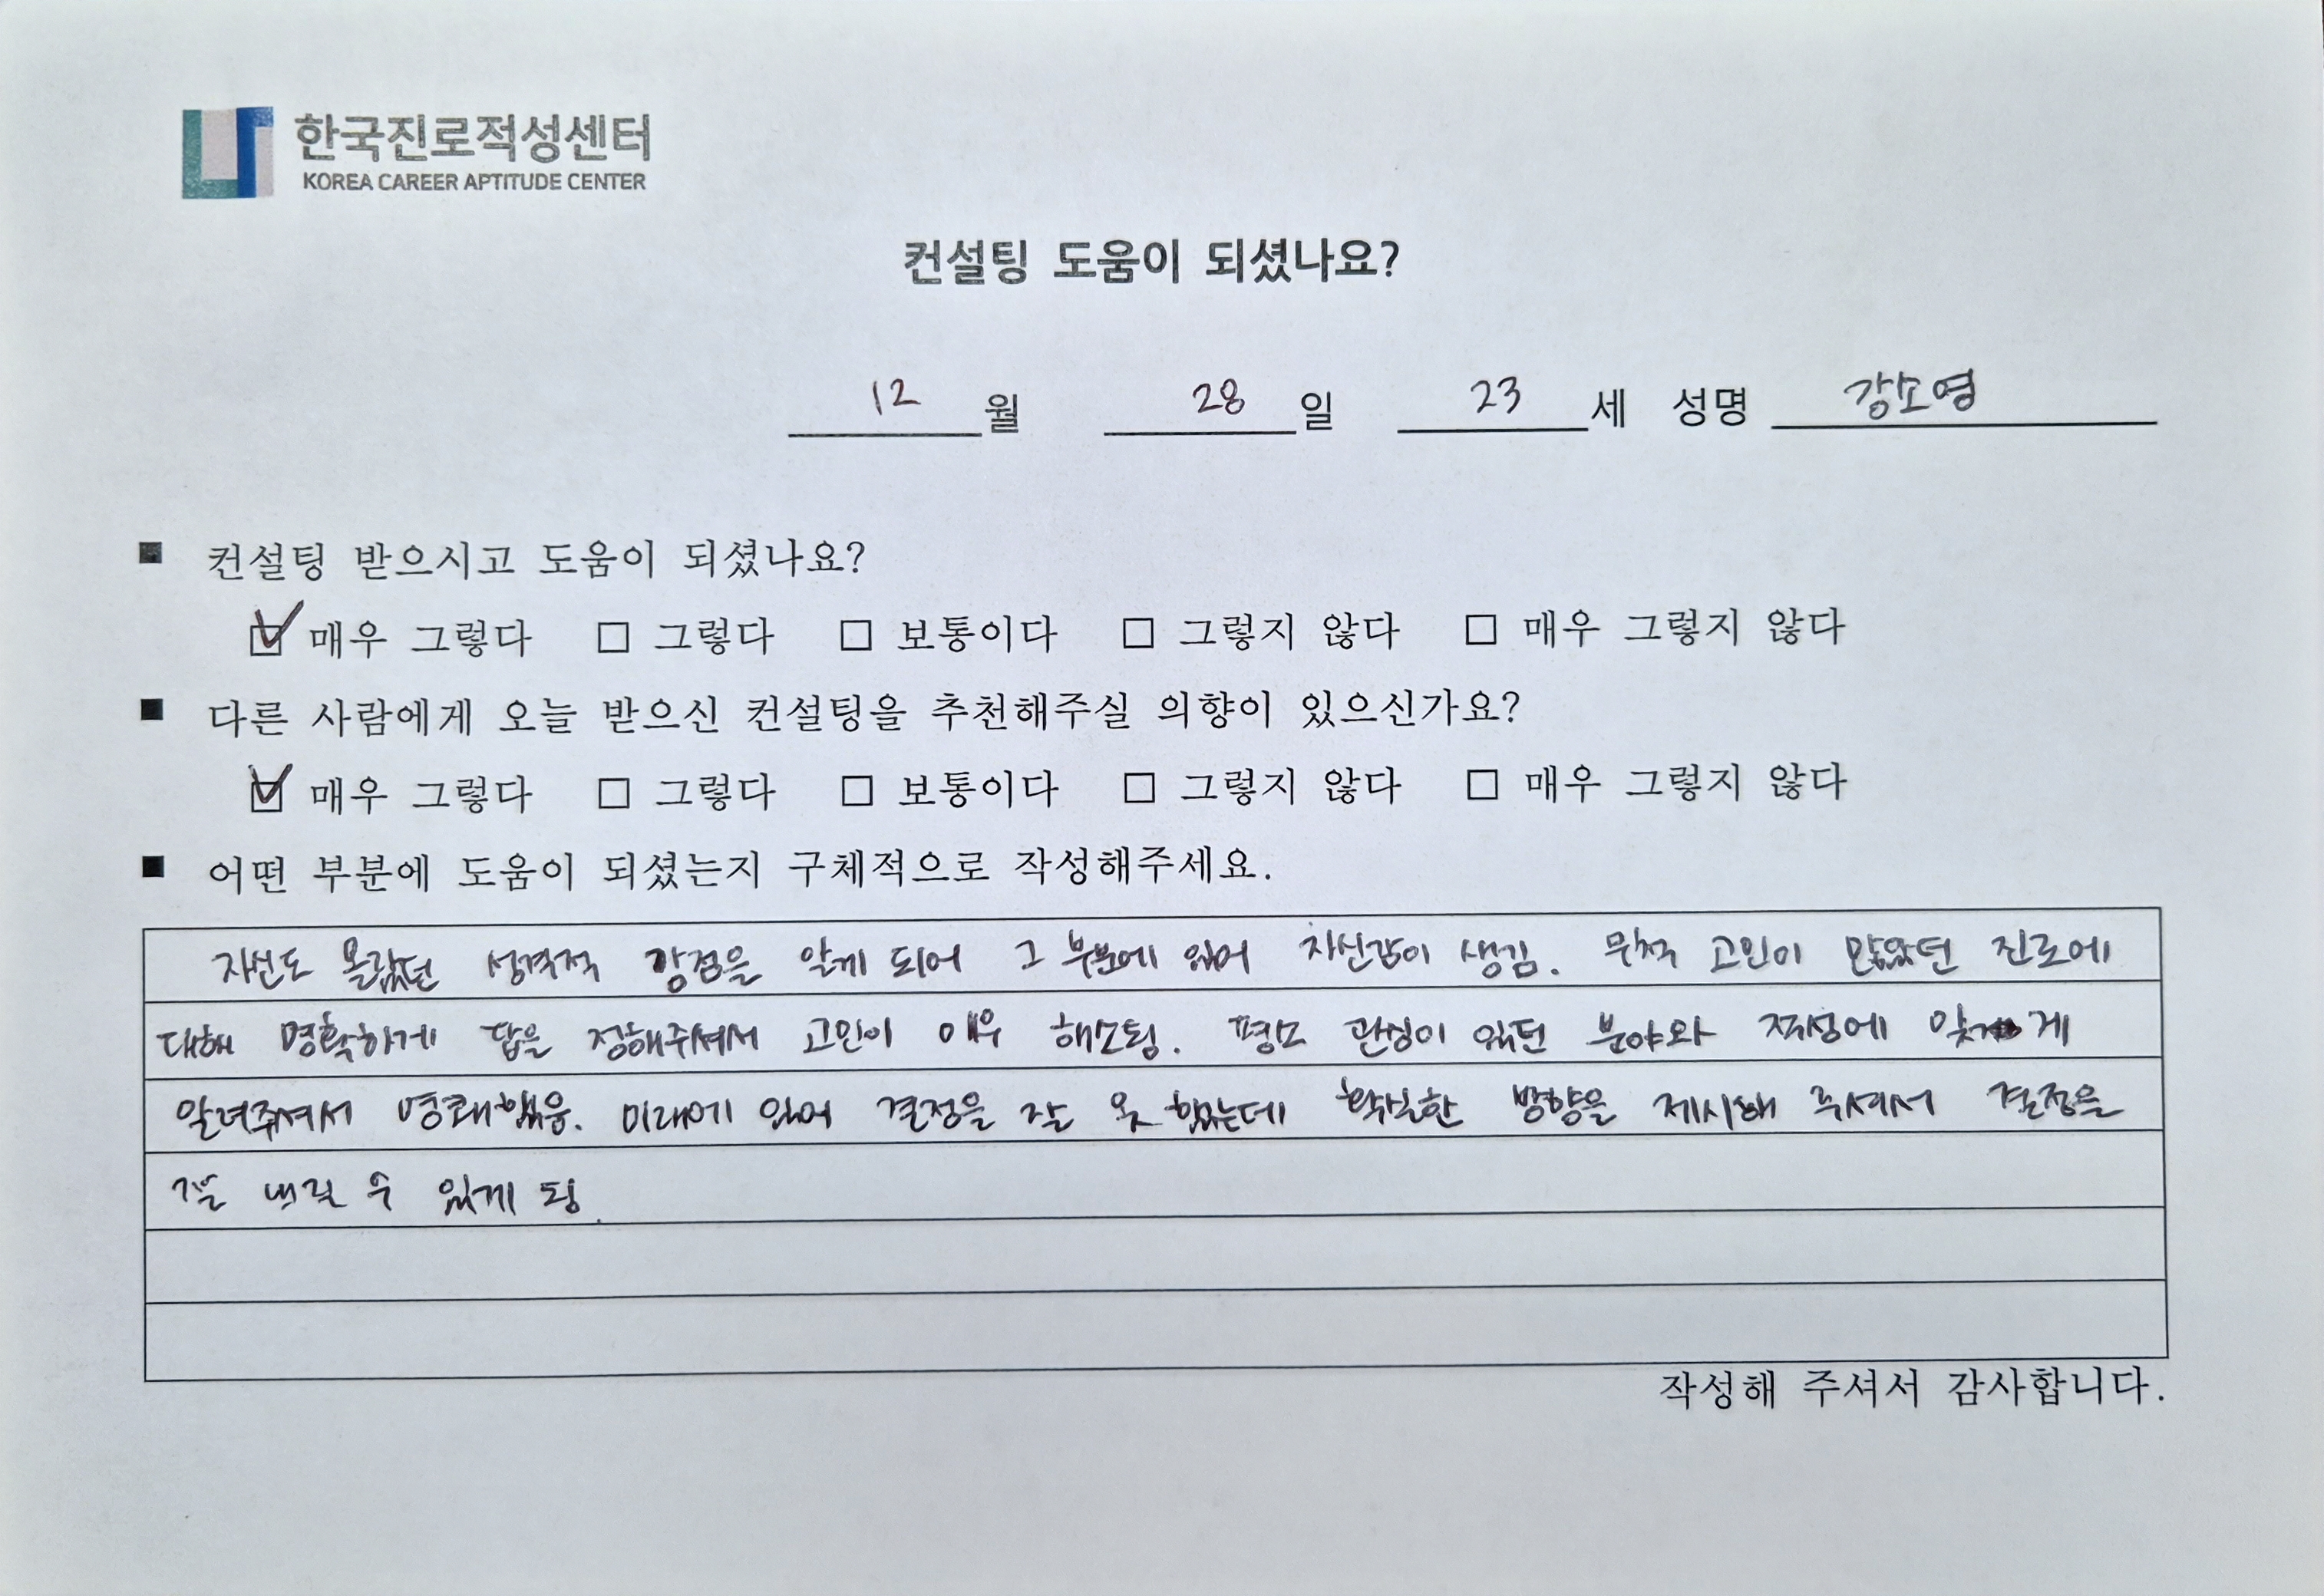 한국진로적성센터
KOREA CAREER APTITUDE CENTER
컨설팅 도움이 되셨나요?
12 월 28 일 23 세 성명 강소영
■ 컨설팅 받으시고 도움이 되셨나요?
☑ 매우 그렇다 □ 그렇다 □ 보통이다 □ 그렇지 않다 □ 매우 그렇지 않다
■ 다른 사람에게 오늘 받으신 컨설팅을 추천해주실 의향이 있으신가요?
☑ 매우 그렇다 □ 그렇다 □ 보통이다 □ 그렇지 않다 □ 매우 그렇지 않다
■ 어떤 부분에 도움이 되셨는지 구체적으로 작성해주세요.
자신도 몰랐던 성격적 강점을 알게 되어 그 부분에 있어 자신감이 생김. 무척 고민이 많았던 진로에
대해 명확하게 답을 정해주셔서 고민이 매우 해소됨. 평소 관심이 있던 분야와 적성에 맞게
알려주셔서 명쾌했음. 미래에 있어 결정을 잘 못 했는데 확실한 방향을 제시해 주셔서 결정을
잘 내릴 수 있게 됨.
작성해 주셔서 감사합니다.